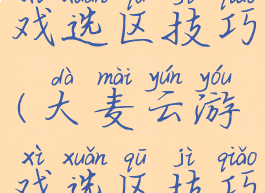 xì xuǎn qū jì qiǎo
戏选区技巧
dà mài yún yóu
(大麦云游
xì xuǎn qū jì qiǎo
戏选区技巧